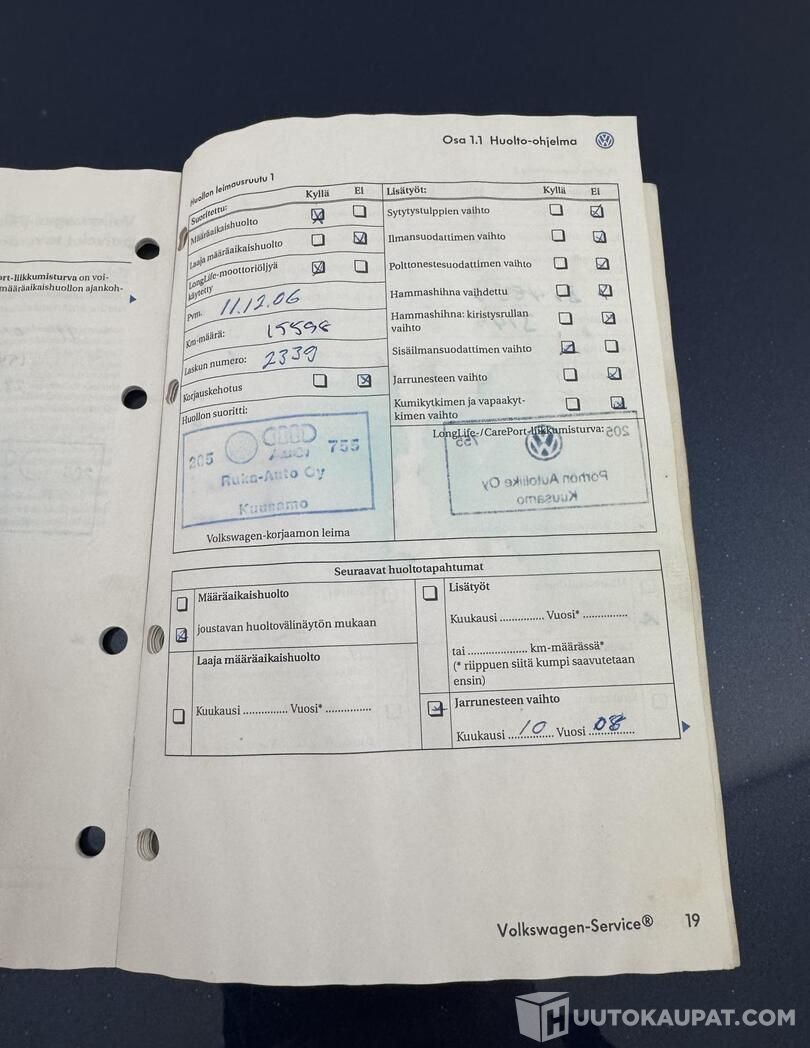 Osa 1.1 Huolto-ohjelma
Huollon leimausruutu 1
Suoritettu: Kyllä Ei
Määräaikaishuolto
Laaja määräaikaishuolto
LongLife-moottoriöljyä
käytetty
Pvm. 11.12.06
Km-määrä: 15598
Laskun numero: 2339
Korjauskehotus
Huollon suoritti:
205 Audi 755
Ruka-Auto Oy
Kuusamo
Volkswagen-korjaamon leima
Lisätyöt: Kyllä Ei
Sytytystulppien vaihto
Ilmansuodattimen vaihto
Polttonestesuodattimen vaihto
Hammashihna vaihdettu
Hammashihna: kiristysrullan
vaihto
Sisäilmansuodattimen vaihto
Jarrunesteen vaihto
Kumikytkimen ja vapaakyt-
kimen vaihto
LongLife-/CarePort-liikkumisturva:
205 755
Porhon Autoliike Oy
Kuusamo
Seuraavat huoltotapahtumat
Määräaikaishuolto
joustavan huoltovälinäytön mukaan
Laaja määräaikaishuolto
Kuukausi ............... Vuosi* ...............
Lisätyöt
Kuukausi ............... Vuosi* ...............
tai .................... km-määrässä*
(* riippuen siitä kumpi saavutetaan
ensin)
Jarrunesteen vaihto
Kuukausi 10 Vuosi 08
ort-liikkumisturva on voi-
määräaikaishuollon ajankoh-
Volkswagen-Service® 19
HUUTOKAUPAT.COM